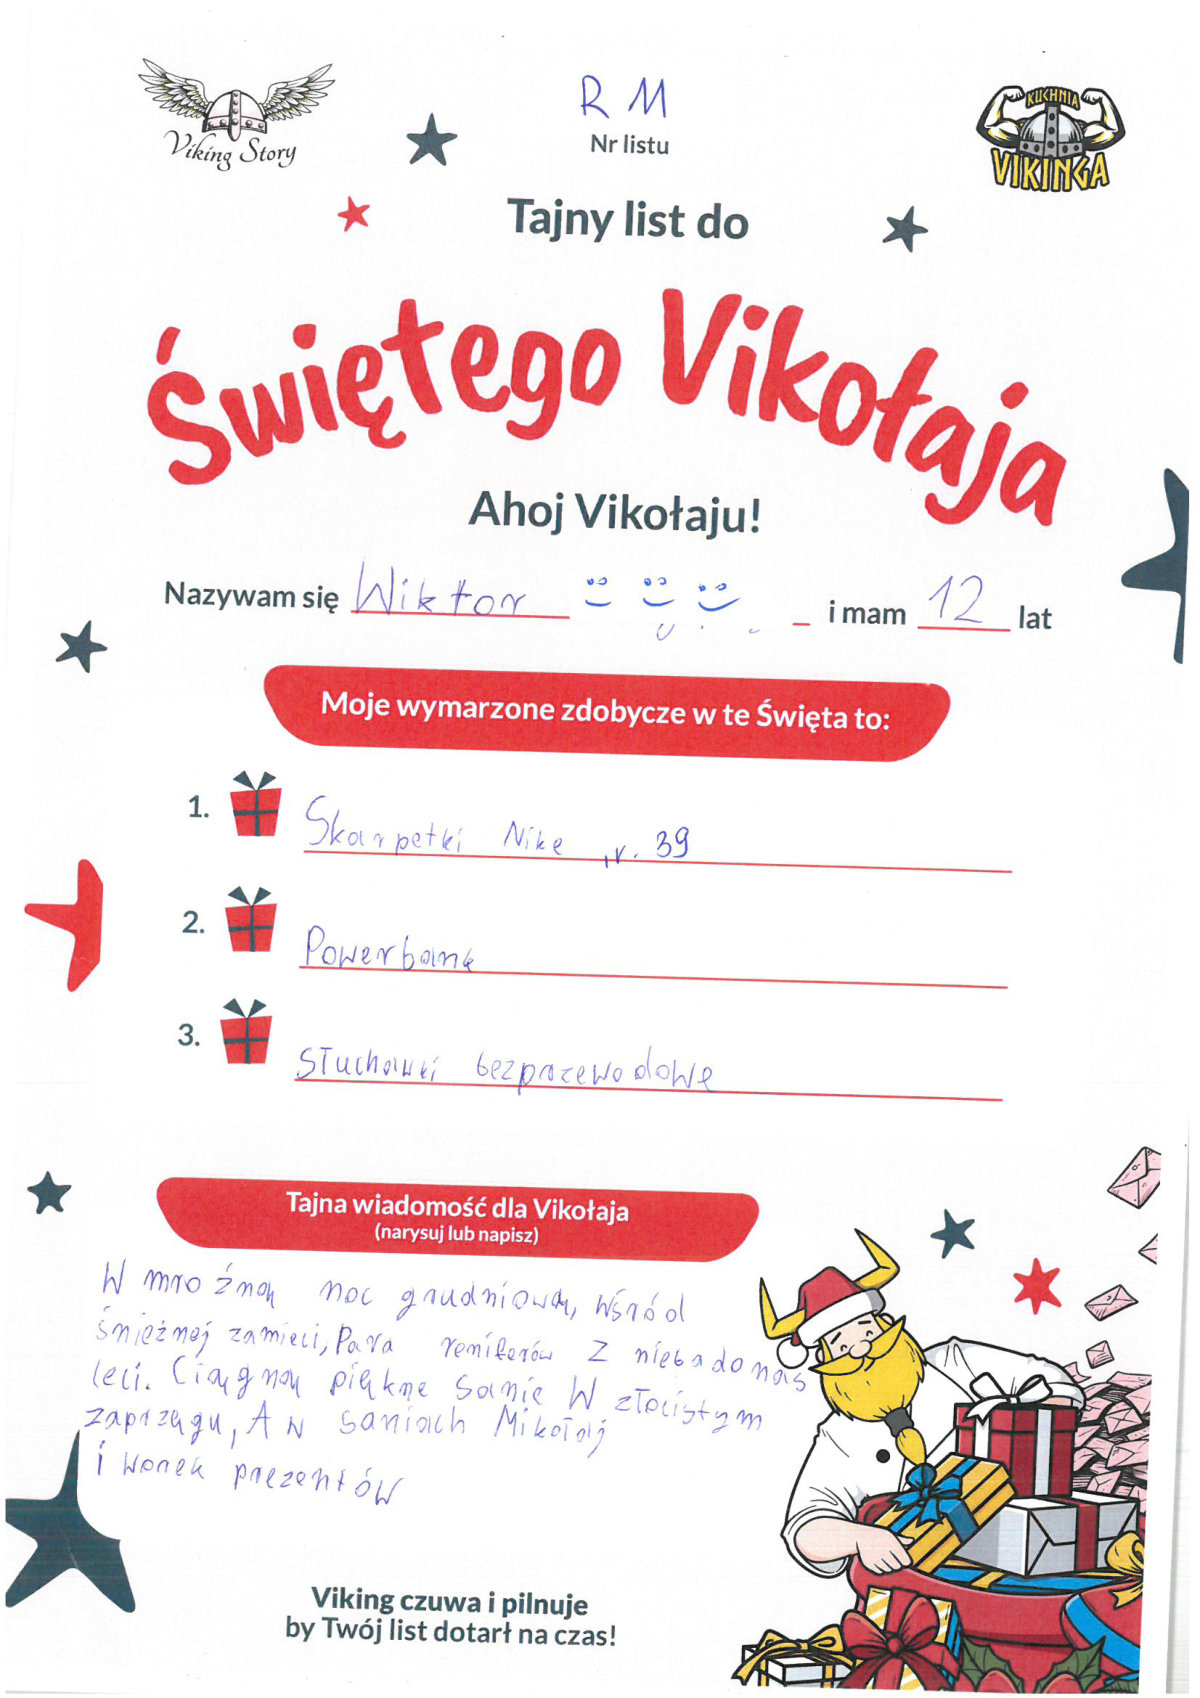 Viking Story
R M
Nr listu
KUCHNIA
VIKINGA
Tajny list do
Świętego Vikołaja
Ahoj Vikołaju!
Nazywam się Wiktor i mam 12 lat
Moje wymarzone zdobycze w te Święta to:
1. Skarpetki Nike r. 39
2. Powerbank
3. Słuchawki bezprzewodowe
Tajna wiadomość dla Vikołaja
(narysuj lub napisz)
W mroźną noc grudniową, wśród
śnieżnej zamieci, Para reniferów z nieba do nas
leci. Ciągną piękne sanie W złocistym
zaprzęgu, A w saniach Mikołaj
i worek prezentów
Viking czuwa i pilnuje
by Twój list dotarł na czas!